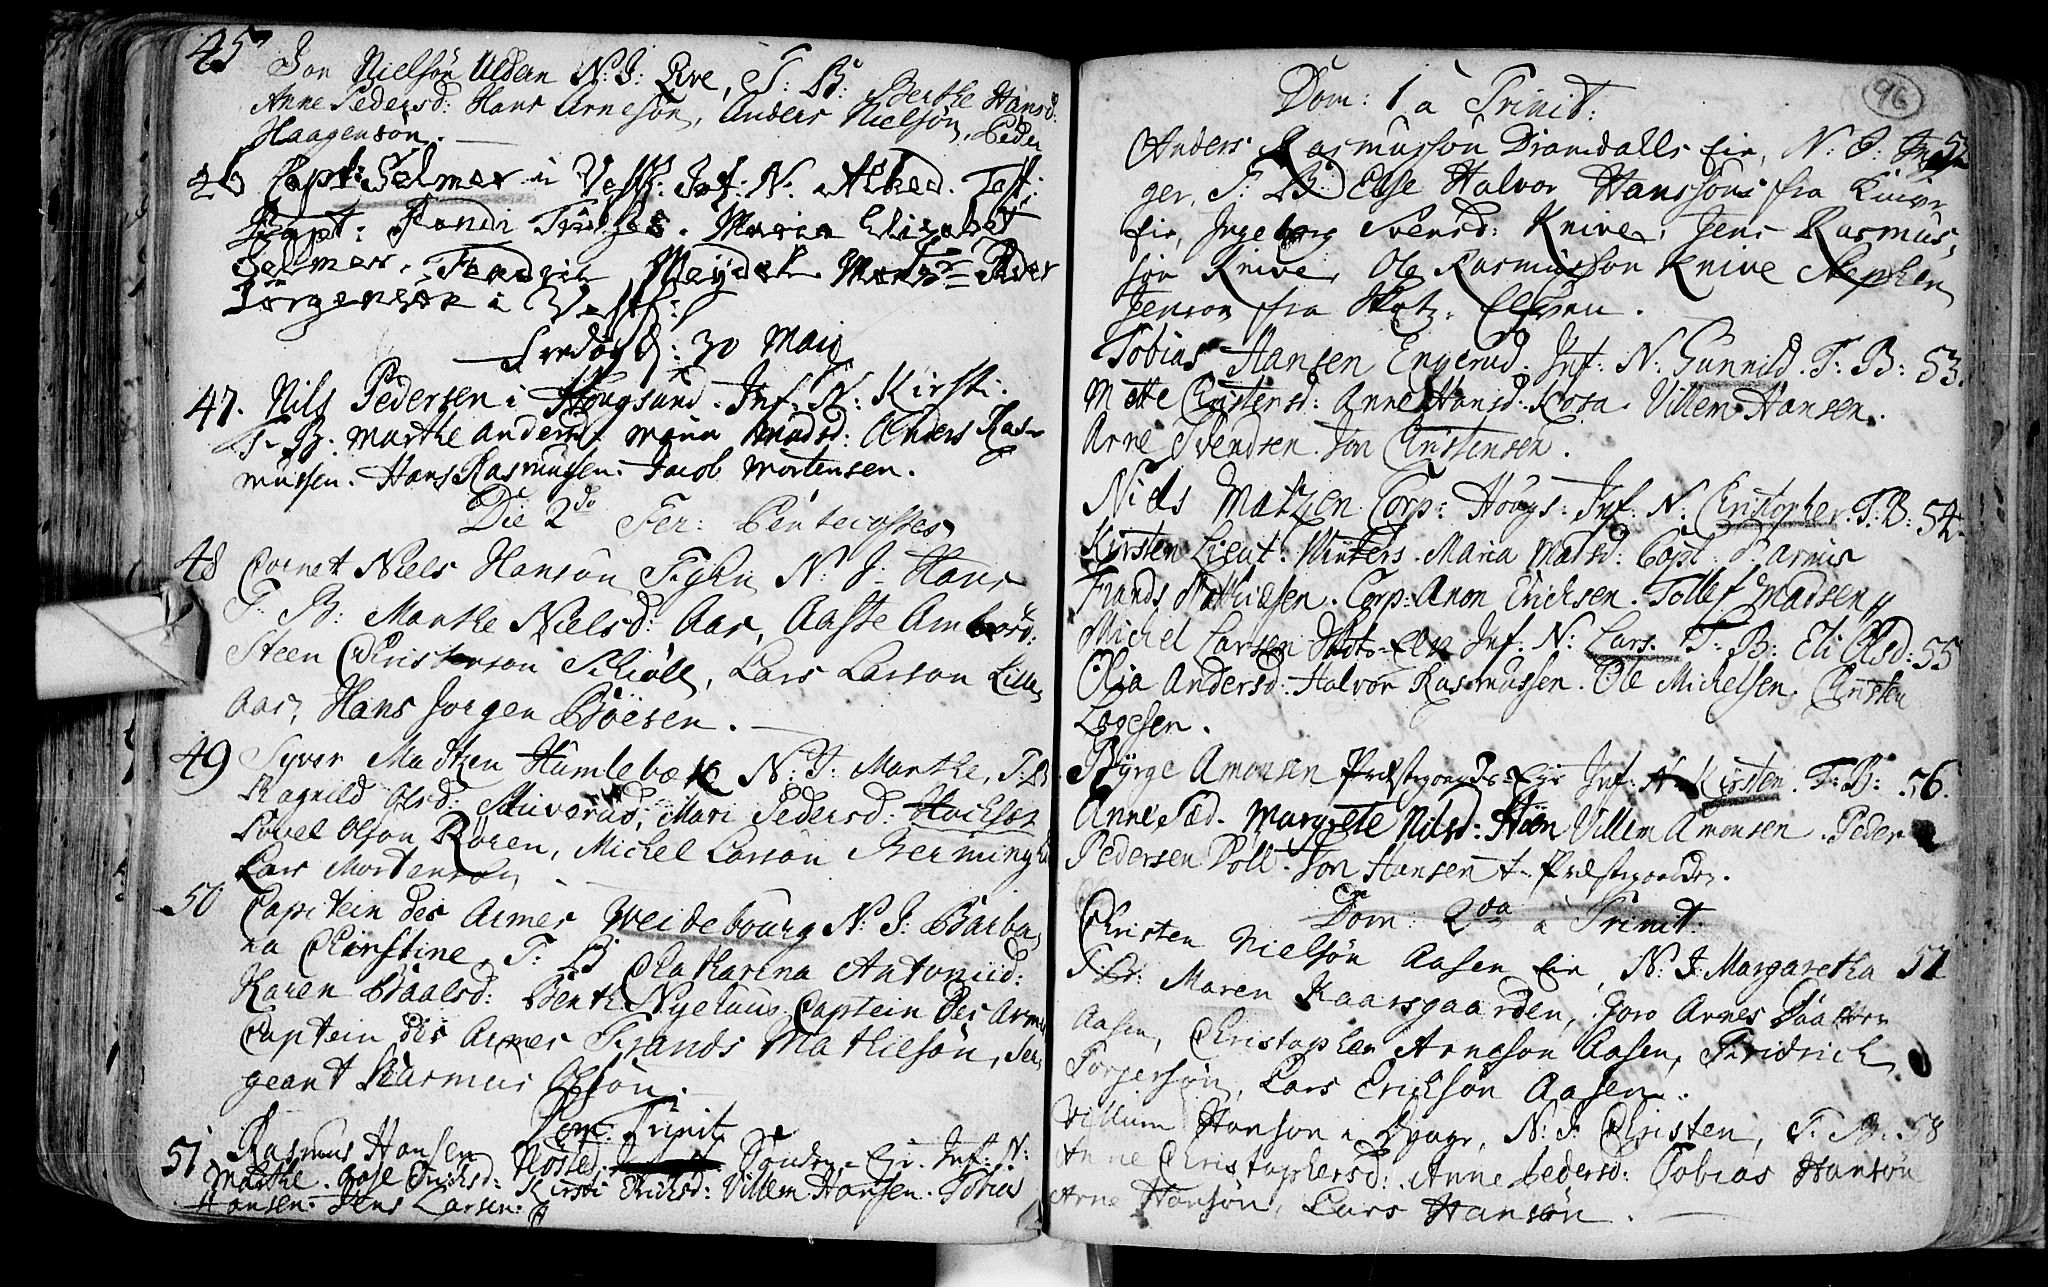 45
Jon Nielsön Ulden N: J: Eve, T: B: Berthe Hansd:
Anne Pedersd: Hans Arnesön, Anders Nielsön, Peder
Haagensön.
46 Capt: Selmer i Vestf: Inf: N: Abked. Test:
Capt: Randi Maria Elizabet
Selmer. Meydel. Peder
Jörgensen i Vestf:
Fredag d: 30 Maij
47. Nils Pedersen i Hougsund. Inf: N: Kirsti.
T: B: Marthe Andersd: Maria Madsd: Anders Ras-
mussen. Hans Rasmussen. Jacob Mortensen.
Die 2do Fer: Pentecostes
48 Cornet Niels Hansön Tyhn N: J: Hans
T: B: Marthe Nielsd: Aas, Aaste Ambrosd:
Steen Christenson Schiöll, Lars Larson Lille
Aas, Hans Jorgen Böesen.
49 Syver Madtzen Humlebæk N: J: Marthe, T: B:
Ragnild Olsd: Skuverud, Mari Pedersd: Hocksön
Povel Olson Roren, Michel Larsön
Lars Mortensön
50 Capitein des Armes Weidebourg N: J: Barba
ra Christine, T: B: Chatharina Antoniid:
Karen Baalsd: Benth Nyehuus Captein des Arme
Captein des Armes Frands Mathiesön, Ser
geant Rasmus Olsön.
Dom: Trinit
51 Rasmus Hansen Inf: N:
Marthe. Aase Ericksd: Kirsti Ericksd: Villem Hansen. Tobias
Hansen. Jens Larsen.
96
Dom: 1 a Trinit:
Anders Rasmussön Dramdalls Eie, N: J: In 52
ger, T: B: Else Halvor Hanssöns fra Knive
Eie, Ingeborg Svensd: Knive, Jens Rasmus
sön Knive, Ole Rasmussön Knive Stephen
Jenson fra Skotz-Elven.
Tobias Hansen Engerud. Inf: N: Gunnild. T: B: 53.
Mette Christensd: Anne Hansd: Kosa. Villem Hansen.
Arne Svendsen. Jon Christensen.
Niels Matzen Corp: Hougs: Inf: N: Christopher. T: B: 54.
Kirsten Lieut: Winters. Maria Matsd: Capt: d'armis
Frands Mathiesen. Corp: Amon Ericksen. Tollef Madsen
Michel Larsen Skots-Elve Inf: N: Lars. T: B: Eli Olsd: 55
Olia Andersd: Halvor Rasmussen. Ole Michelsen. Christen
Lagesen.
Byrge Amonsen Præstegaards-Eye Inf: N: Kirsten. T: B: 56.
Anne Margrete Nilsd: Höen Villem Amonsen. Peder
Pedersen Doll. Jon Hansen Præstegaarden.
Dom: 2da a Trinit:
Christen Nielsön Aasen Eie, N: J: Margaretha 57
T: B: Maren Kaarsgaarden, Goro Arnes
Aasen, Christopher Arneson Aasen, Fridrich
Torgersön, Lars Ericksön Aasen.
Villum Hanson i N: J: Christen, T: B: 58
Anne Christophersd: Anne Pedersd: Tobias Hansön
Arne Hansön, Lars Hansön.